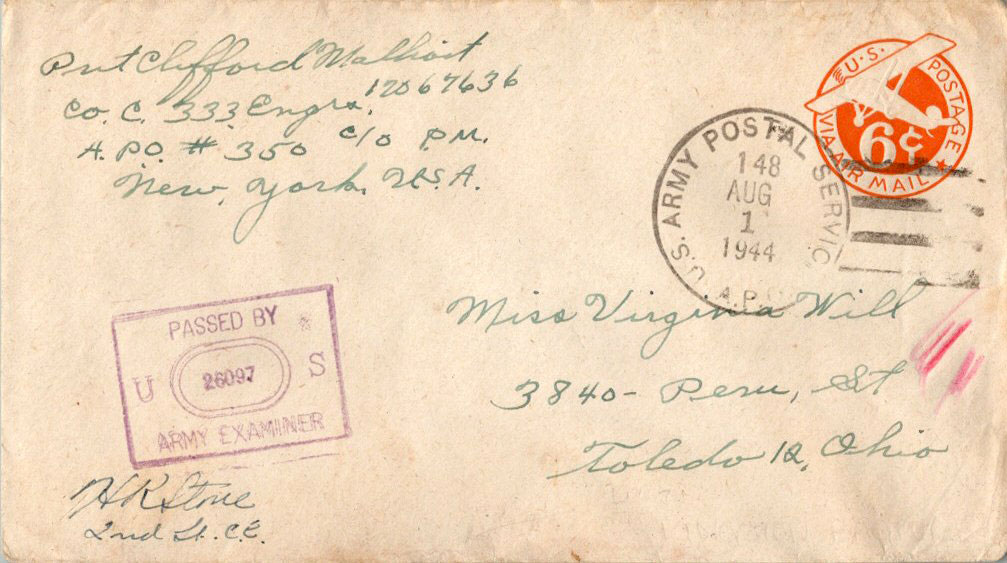 Pvt Clifford Malhiot
17067636
Co. C. 333 Engrs.
A.P.O. # 350 c/o P.M.
New York, U.S.A.
U.S. POSTAGE
VIA AIR MAIL
6¢
U.S. ARMY POSTAL SERVIC
148
AUG
1
1944
A.P.
Miss Virginia Will
3840- Peru, St
Toledo 12, Ohio
PASSED BY
U 26097 S
ARMY EXAMINER
HRStone
2nd Lt. C.E.